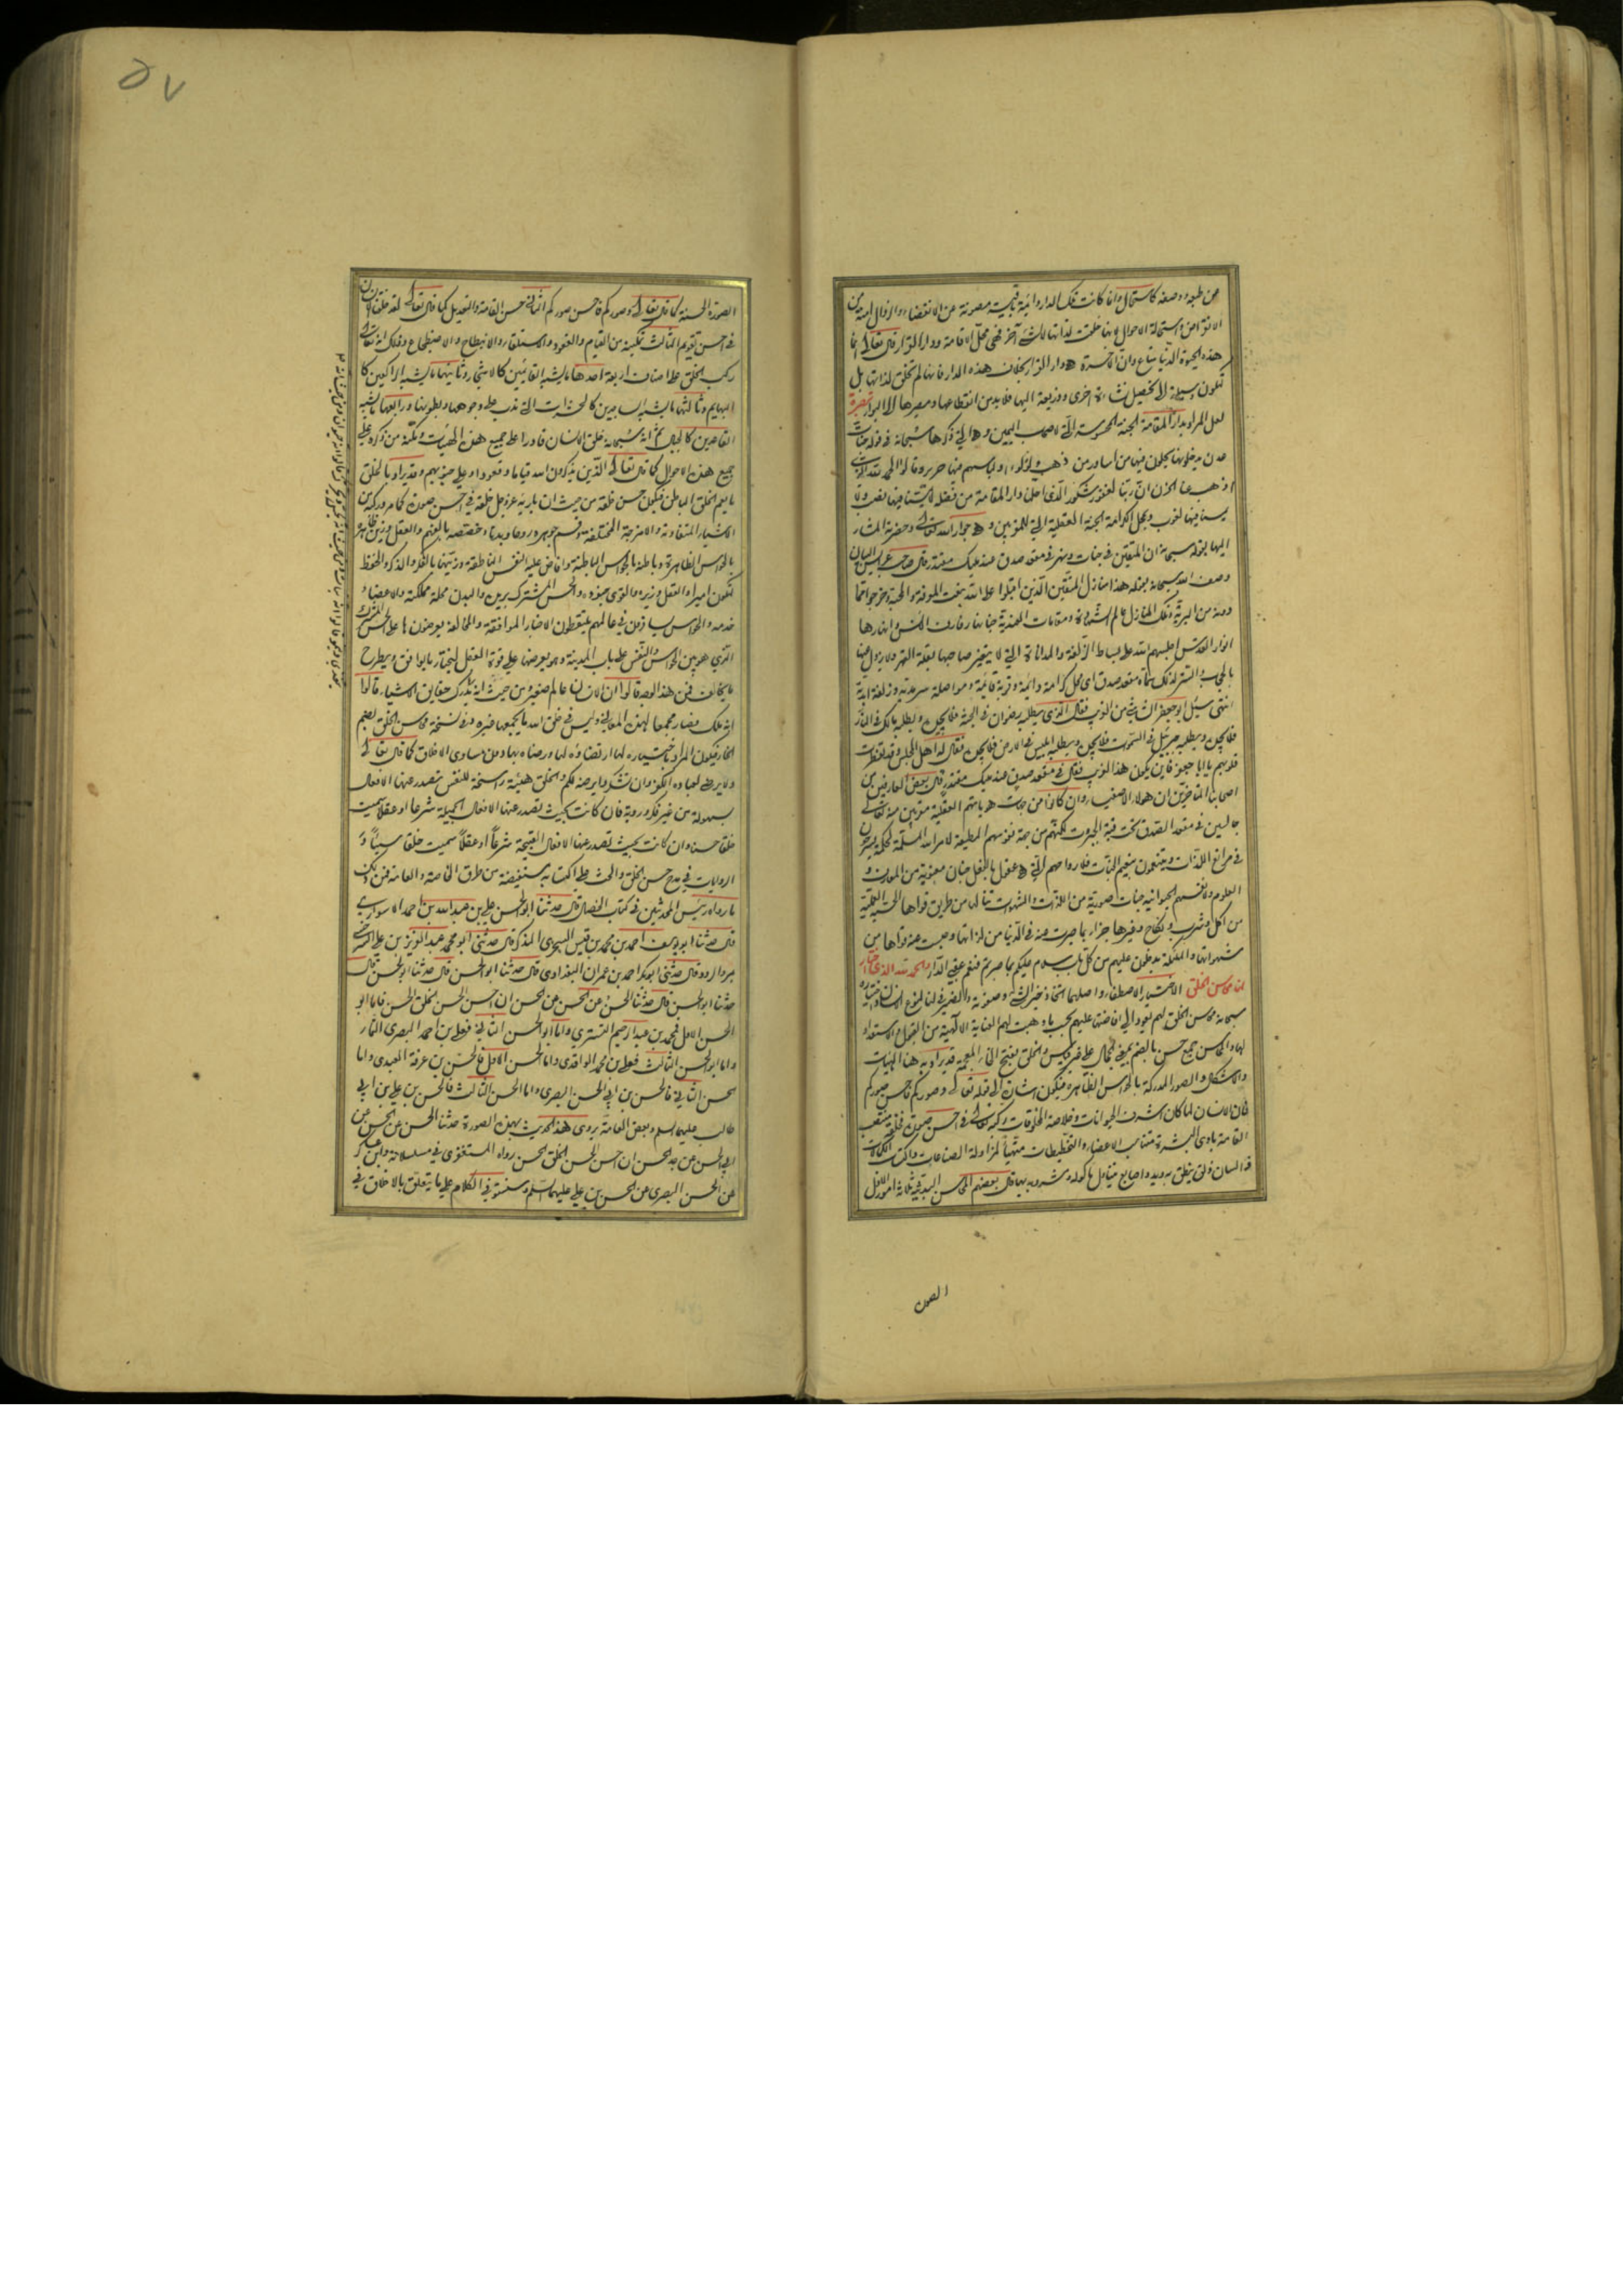 عن طبعه ووصفه كاستحال وانما كانت تلك الدار دائمة باقية مصونة عن الانقضاء والزوال امنة من
الانتقال من استحالة الاحوال لانها خلقت لذاتها لا لشئ آخر فهى محل الاقامة ودار القرار قال تعالى انما
هذه الحيوة الدنيا متاع وان الآخرة هى دار القرار بخلاف هذه الدار فانها لم تخلق لذاتها بل
لتكون وسيلة الى تحصيل نشأة اخرى وذريعة اليها فلا بد من انقطاعها ومصيرها الى البوار تبصرة
لعل المراد بدار المقامة الجنة المحسوسة التى لاصحاب اليمين وهى التى ذكرها سبحانه فى قوله جنات
عدن يدخلونها يحلون فيها من اساور من ذهب ولؤلؤا ولباسهم فيها حرير وقالوا الحمد لله الذى
اذهب عنا الحزن ان ربنا لغفور شكور الذى احلنا دار المقامة من فضله لا يمسنا فيها نصب ولا
يمسنا فيها لغوب وبمحل الكرامة الجنة العقلية التى للمقربين وهى جوار الله تعالى وحضرته المشار
اليها بقوله سبحانه ان المتقين فى جنات ونهر فى مقعد صدق عند مليك مقتدر قال صاحب عرايس البيان
وصف الله سبحانه بقوله هذا منازل المتقين الذين اقبلوا على الله بنعت المعرفة والمحبة وخرجوا مما
دونه من البرية وتلك المنازل عالم المشاهدة ومقامات العندية جنانها رفارف الانس وانهارها
انوار القدس اجلسهم الله على بساط الزلفة والمداناة التى لا يتغير صاحبها بعلة القهر ولا يزول عنها
بالحجب والتستر لذلك سماه مقعد صدق اى محل كرامة دائمة وقربة قائمة ومواصلة سرمدية وزلفة ابدية
انتهى سئل ابو جعفر الشاشى من الغريب فقال الذى يطلبه رضوان فى الجنة فلا يجده ويطلبه مالك فى النار
فلا يجده ويطلبه جبرئيل فى السموات فلا يجده ويطلبه ابليس فى الارض فلا يجده فقال له اهل المجلس وقد تفطرت
قلوبهم يا ابا جعفر فاين يكون هذا الغريب فقال فى مقعد صدق عند مليك مقتدر قال بعض العارفين من
اصحابنا المتاخرين ان هؤلاء الاصفياء وان كانوا من حيث هوياتهم العقلية مقربين منه تعالى
جالسين فى مقعد الصدق تحت قبة الجبروت لكنهم من جهة نفوسهم المطيعة لامر الله المسلمة لحكمه يسرحون
فى مراتع اللذات ويتنعمون بنعيم الجنات فلارواحهم التى هى عقول بالفعل جنات معنوية من المعارف و
العلوم ولانفسهم الحيوانية جنات صورية من اللذات والشهوات تنالها من طريق قواها الحسية العملية
من اكل وشرب ونكاح وغيرها جزاء بما صبرت عنه فى الدنيا من لذاتها وحبست عنه قواها من
شهواتها والملئكة يدخلون عليهم من كل باب سلام عليكم بما صبرتم فنعم عقبى الدار والحمد لله الذى اختار
لنا محاسن الخلق الاختيار الاصطفاء واصلهما اتخاذ خير الشئ وصفوته والضمير فى لنا لنوع الانسان واختياره
سبحانه محاسن الخلق لهم يعود الى افاضتها عليهم بحسب ما وهبت لهم العناية الالهية من القبول والاستعداد
لها والمحاسن جمع حسن بالضم بمعنى الجمال على غير قياس والخلق بفتح الخاء المعجمة قد يراد به هنا الهيئات
والاشكال والصور المدركة بالحواس الظاهرة فيكون اشارة الى قوله تعالى وصوركم فاحسن صوركم
فان الانسان لما كان اشرف الحيوانات وخلاصة المخلوقات ركبه تعالى فى احسن صورة فخلقه منتصب
القامة بادى البشرة متناسب الاعضاء والتخطيطات متهيأ لمزاولة الصناعات واكتساب الكمالات
ذا لسان ذلق ينطق به ويد واصابع يتناول بها ماكوله ومشروبه بها قال بعضهم المحاسن البدنية ثلاثة امور الاول
الصورة
الصورة الحسنة كما قال تعالى وصوركم فاحسن صوركم الثانى حسن القامة والتعديل كما قال تعالى لقد خلقنا الانسان
فى احسن تقويم الثالث تمكينه من القيام والقعود والاستلقاء والانبطاح والاضطجاع وذلك انه تعالى
ركب الخلق على اصناف اربعة احدها ما يشبه القائمين كالاشجار وثانيها ما يشبه الراكعين كا
لبهايم وثالثها ما يشبه الساجدين كالحشرات التى تدب على وجوهها وبطونها ورابعها ما يشبه
القاعدين كالجبال ثم انه سبحانه خلق الانسان قادرا على جميع هذه الهيئات ومكنه من ذكره على
جميع هذه الاحوال كما قال تعالى الذين يذكرون الله قياما وقعودا وعلى جنوبهم وقد يراد بالخلق
ما يعم الخلق الباطن فيكون حسن خلقه من حيث ان باريه عز وجل خلقه فى احسن صورة كما مر وركبه من
الاشياء المتفاوتة والامزجة المختلفة وقسم جوهره روحا وبدنا وخصصه بالفهم والعقل وزين ظاهره
بالحواس الظاهرة وباطنه بالحواس الباطنة وافاض عليه النفس الناطقة وزينها بالفكر والذكر والحفظ
لتكون اميرا والعقل وزيره والقوى جنوده والحس المشترك بريده والبدن محل مملكته والاعضاء
خدمه والحواس يسافرون فى عالمهم يلتقطون الاخبار الموافقة والمخالفة ويعرضونها على الحس المشترك
الذى هو بين الحواس والنفس على باب المدينة وهو يعرضها على قوة العقل ليختار ما يوافق ويطرح
ما يخالف فمن هذا الوجه قالوا ان الانسان عالم صغير ومن حيث انه يدرك حقايق الاشياء قالوا
انه ملك فصار مجمعا لهذه المعانى وليس فى خلق الله ما يجمعها غيره وفى نسخة محاسن الخلق بضم
الخاء فيكون المراد باختياره لها ارتضاؤه لها ورضاه بها دون مساوى الاخلاق كما قال تعالى
ولا يرضى لعباده الكفر وان تشكروا يرضه لكم والخلق هيئة راسخة للنفس تصدر عنها الافعال
بسهولة من غير فكر وروية فان كانت بحيث تصدر عنها الافعال الجميلة شرعا او عقلا سميت
خلقا حسنا وان كانت بحيث تصدر عنها الافعال القبيحة شرعا او عقلا سميت خلقا سيئا و
الروايات فى مدح حسن الخلق والحث على اكتسابه مستفيضة من طرق الخاصة والعامة فمن ذلك
ما رواه رئيس المحدثين فى كتاب الخصال قال حدثنا ابو الحسن على بن عبد الله بن احمد الاسوارى
قال حدثنا ابو يوسف احمد بن محمد بن قيس السجزى المذكر قال حدثنى ابو محمد عبد العزيز بن على السرخسى
بمرو الرود قال حدثنى ابو بكر احمد بن عمران البغدادى قال حدثنا ابو الحسن قال حدثنا ابو الحسن قال
حدثنا ابو الحسن قال حدثنا الحسن عن الحسن عن الحسن ان احسن الحسن الخلق الحسن فاما ابو
الحسن الاول فمحمد بن عبد الرحيم التسترى واما ابو الحسن الثانى فعلى بن احمد البصرى التمار
واما ابو الحسن الثالث فعلى بن محمد الواقدى واما الحسن الاول فالحسن بن عرفة العبدى واما
الحسن الثانى فالحسن بن ابى الحسن البصرى واما الحسن الثالث فالحسن بن على بن ابى
طالب عليهما السلم وبعض العامة يروى هذا الحديث بهذه الصورة حدثنا الحسن عن الحسن عن
ابى الحسن عن جد الحسن ان احسن الحسن الخلق الحسن رواه المستغفرى فى مسلسلاته وابن عساكر
عن الحسن البصرى عن الحسن بن على عليهما السلم وسنستوفى الكلام على ما يتعلق بالاخلاق فى
٥٧